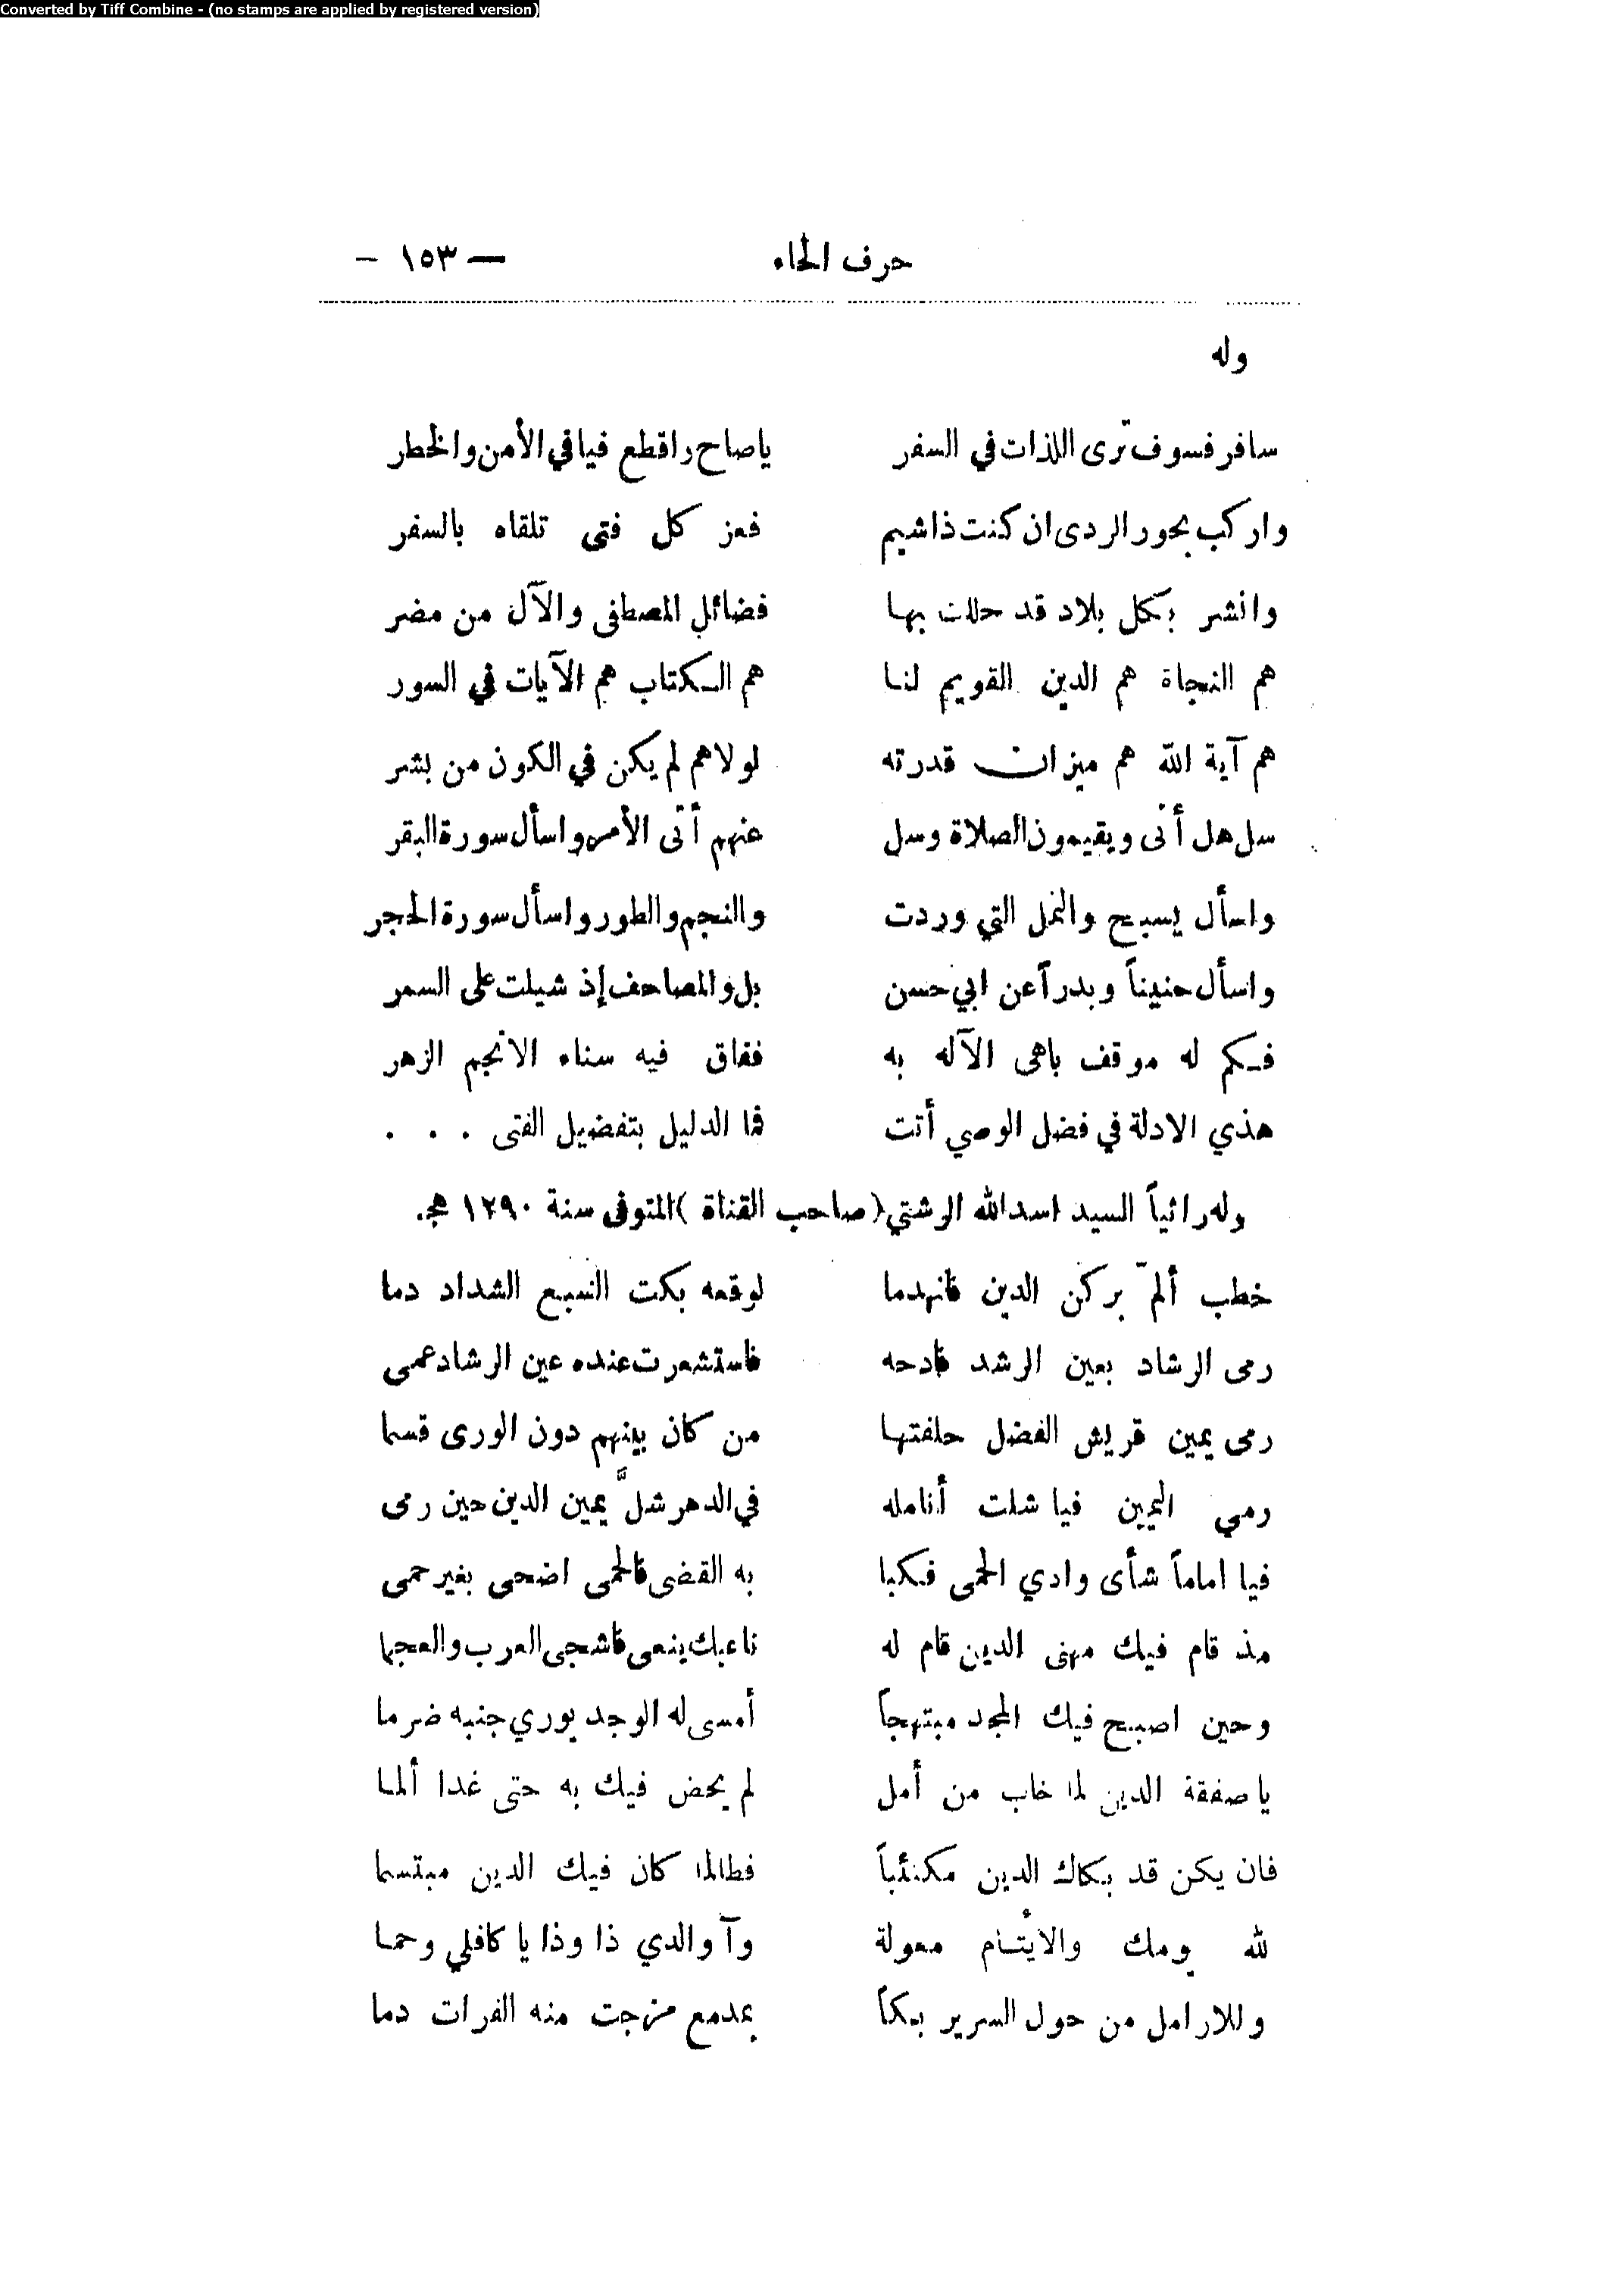 Converted by Tiff Combine - (no stamps are applied by registered version)
حرف الحاء — ١٥٣ –
وله
سافر فسوف ترى اللذات في السفر يا صاح واقطع فيافي الأمن والخطر
واركب بحور الردى ان كنت ذا شيم فعز كل فتى تلقاه بالسفر
وانشر بكل بلاد قد حللت بها فضائل المصطفى والآل من مضر
هم النجاة هم الدين القويم لنا هم الكتاب هم الآيات في السور
هم آية الله هم ميزان قدرته لولاهم لم يكن في الكون من بشر
سل هل أتى ويقيمون الصلاة وسل عنهم أتى الأمر واسأل سورة البقر
واسأل يسبح والنمل التي وردت والنجم والطور واسأل سورة الحجر
واسأل حنيناً وبدراً عن ابي حسن بل والمصاحف إذ شيلت على السمر
فكم له موقف باهى الآله به ففاق فيه سناء الانجم الزهر
هذي الادلة في فضل الوصي أتت فما الدليل بتفضيل الفتى . . .
وله راثياً السيد اسدالله الرشتي (صاحب القناة) المتوفى سنة ١٢٩٠ هج.
خطب ألمّ بركن الدين فانهدما لوقعه بكت السبع الشداد دما
رمى الرشاد بعين الرشد فادحه فاستشعرت عنده عين الرشاد عمى
رمى يمين قريش الفضل حلفتها من كان بينهم دون الورى قسما
رمي اليمين فيا شلت أنامله في الدهر شلَّ يمين الدين حين رمى
فيا اماماً شأى وادي الحمى فكبا به القضى فالحمى اضحى بغير حمى
مذ قام فيك مهنى الدين قام له ناعيك ينعى فاشجى العرب والعجما
وحين اصبح فيك المجد مبتهجاً أمسى له الوجد يوري جنبه ضرما
يا صفقة الدين لما خاب من أمل لم يحض فيك به حتى غدا ألما
فان يكن قد بكاك الدين مكتئباً فطالما كان فيك الدين مبتسما
لله يومك والايتام معولة وآ والدي ذا وذا يا كافلي وحما
وللارامل من حول السرير بكاً بمدمع مزجت منه الفرات دما